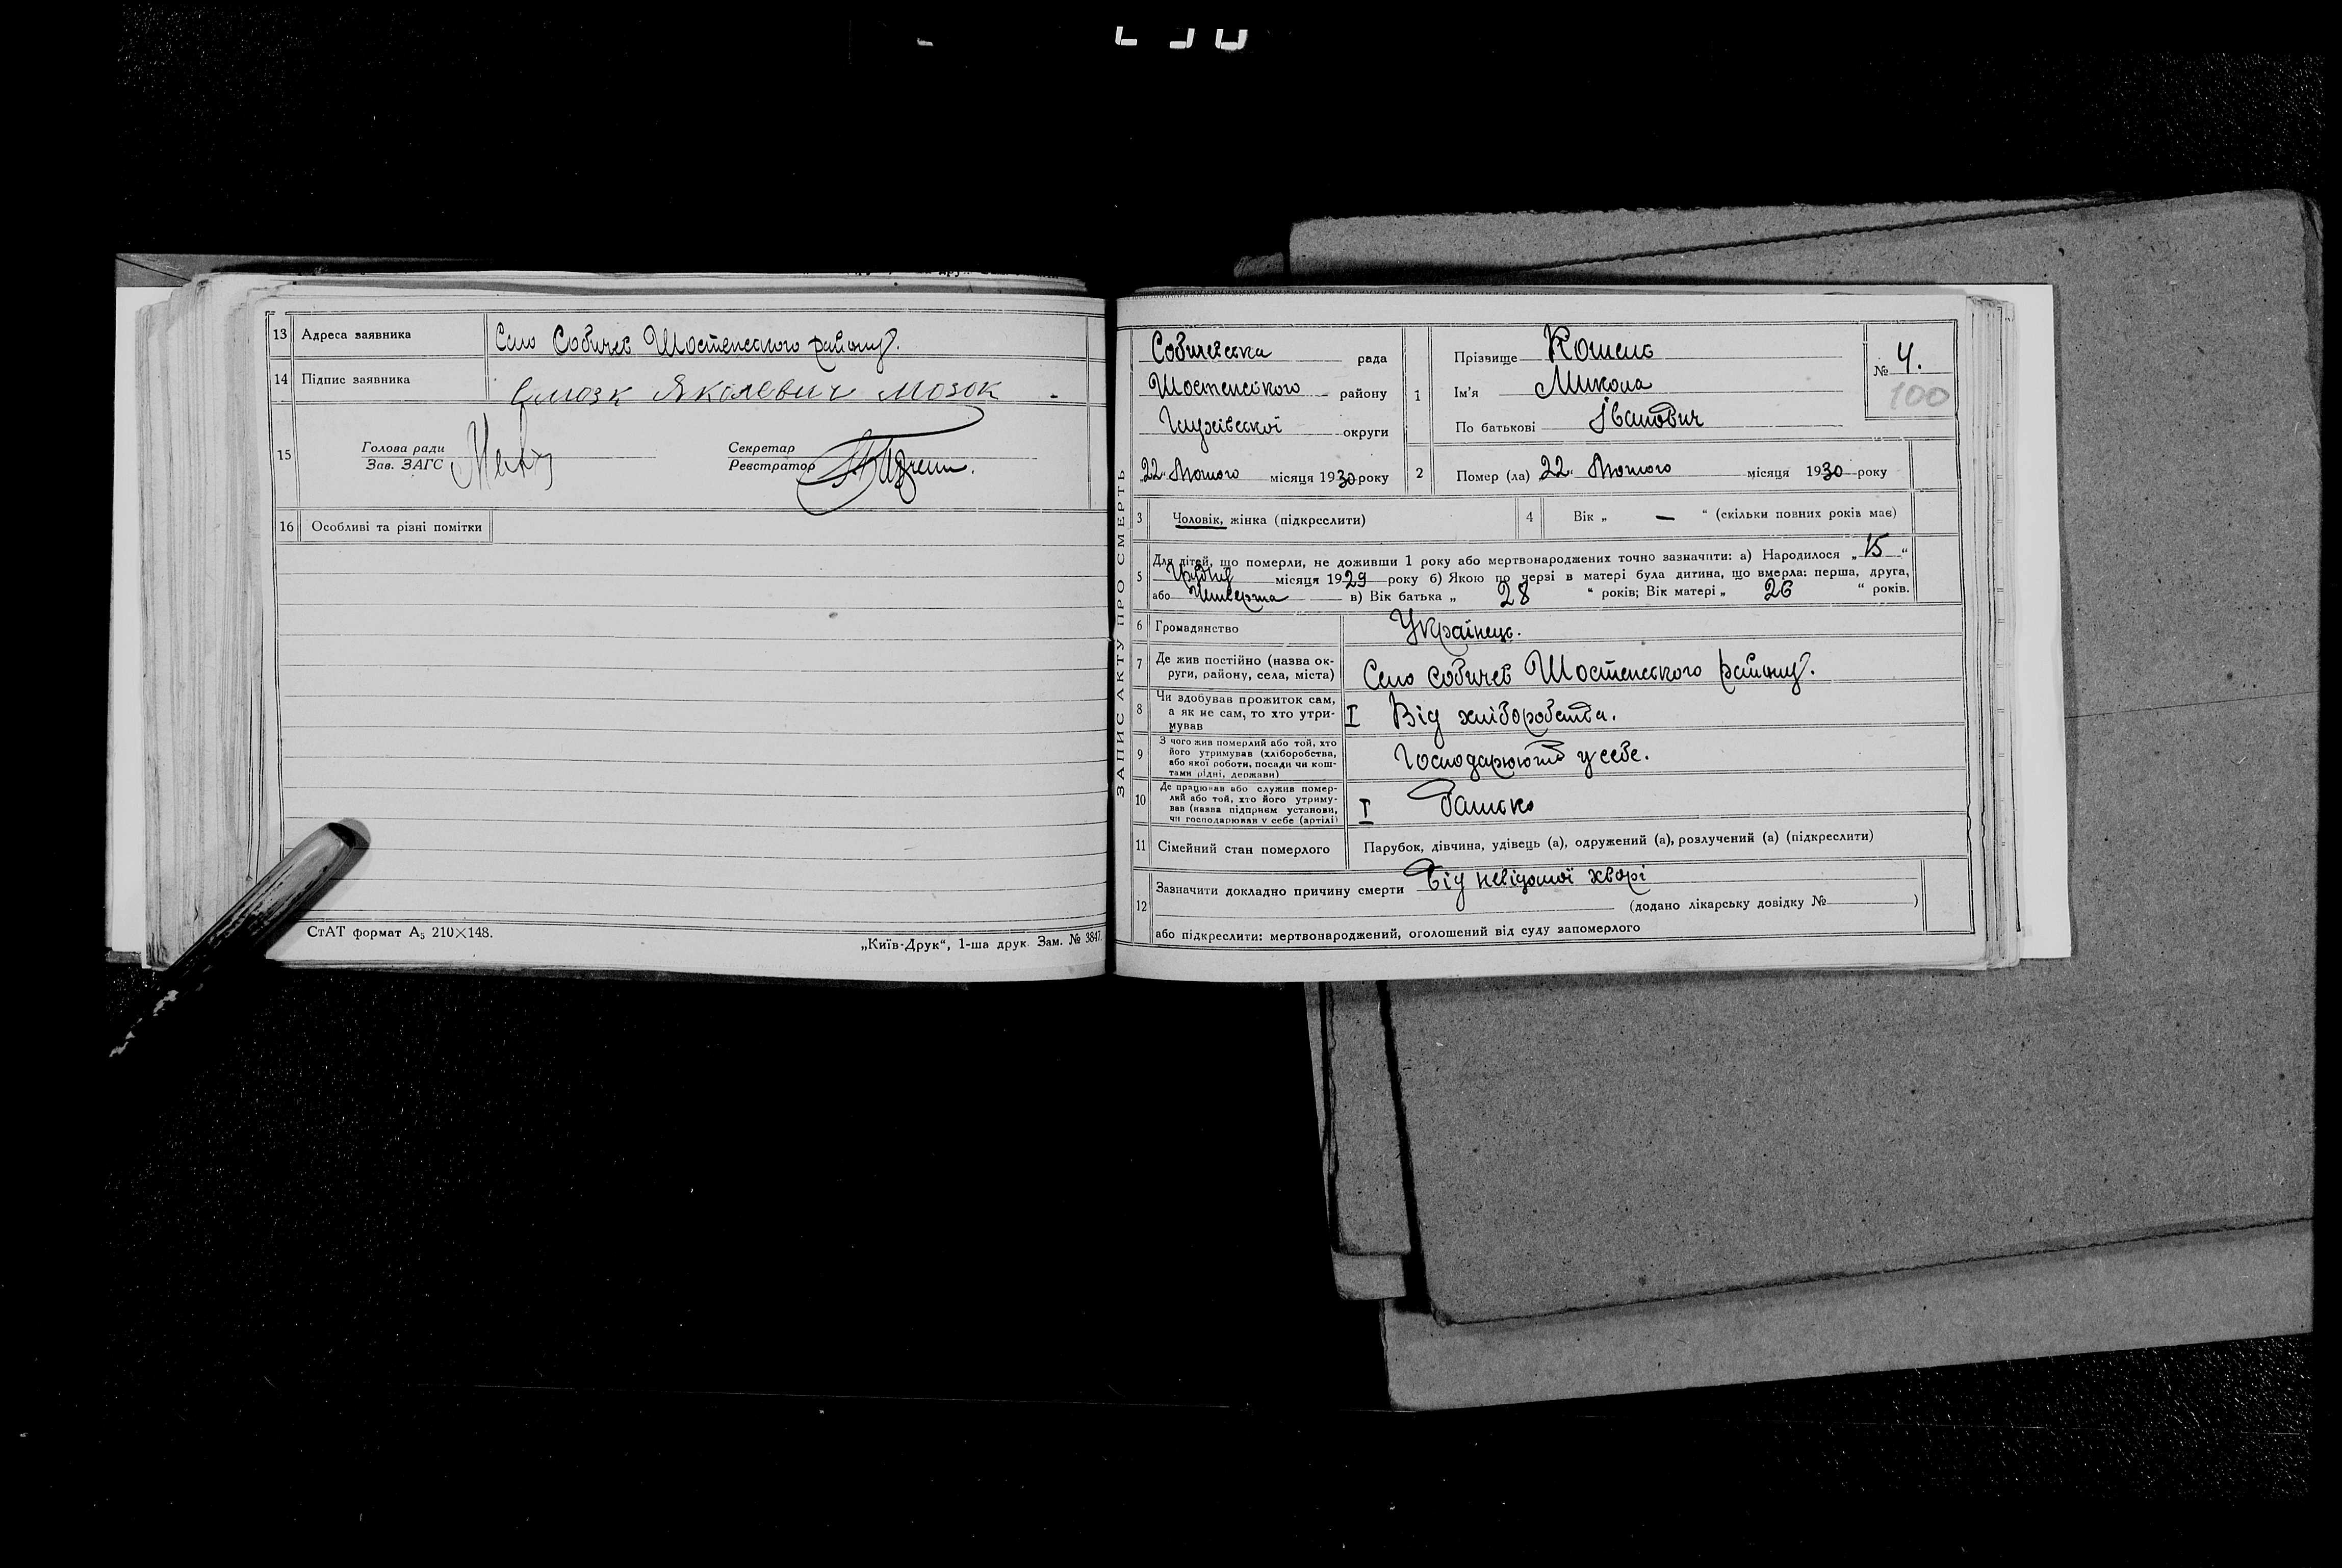 13 Адреса заявника Село Собичев Шостенського району.
14 Підпис заявника Яковлевич Мозок
15 Голова ради
Зав. ЗАГС
Секретар
Реєстратор
16 Особливі та різні помітки
СтАТ формат А₅ 210×148.
„Київ-Друк“, 1-ша друк. Зам. № 3847.
ЗАПИС АКТУ ПРО СМЕРТЬ
Собичевська рада
Шостенського району
Глухівської округи
22 Лютого місяця 1930 року
1 Прізвище Кошель
Ім'я Микола
По батькові Іванович
№ 4.
100
2 Помер (ла) 22 Лютого місяця 1930 року
3 Чоловік, жінка (підкреслити)
4 Вік „ — “ (скільки повних років має)
5 Для дітей, що померли, не доживши 1 року або мертвонароджених точно зазначити: а) Народилося „ 15 “
Грудня місяця 1929 року б) Якою по черзі в матері була дитина, що вмерла: перша, друга,
або Четверта в) Вік батька „ 28 “ років; Вік матері „ 26 “ років.
6 Громадянство Українець.
7 Де жив постійно (назва ок-
руги, району, села, міста) Село Собичев Шостенського району.
8 Чи здобував прожиток сам,
а як не сам, то хто утри-
мував I Від хліборобства.
9 З чого жив померлий або той, хто
його утримував (хліборобства,
або якої роботи, посади чи кош-
тами рідні, держави) Господарюють у себе.
10 Де працював або служив помер-
лий або той, хто його утриму-
вав (назва підприєм установи,
чи господарював у себе (артілі) I батько
11 Сімейний стан померлого Парубок, дівчина, удівець (а), одружений (а), розлучений (а) (підкреслити)
12 Зазначити докладно причину смерти Від невідомої хворі
(додано лікарську довідку № )
або підкреслити: мертвонароджений, оголошений від суду запомерлого